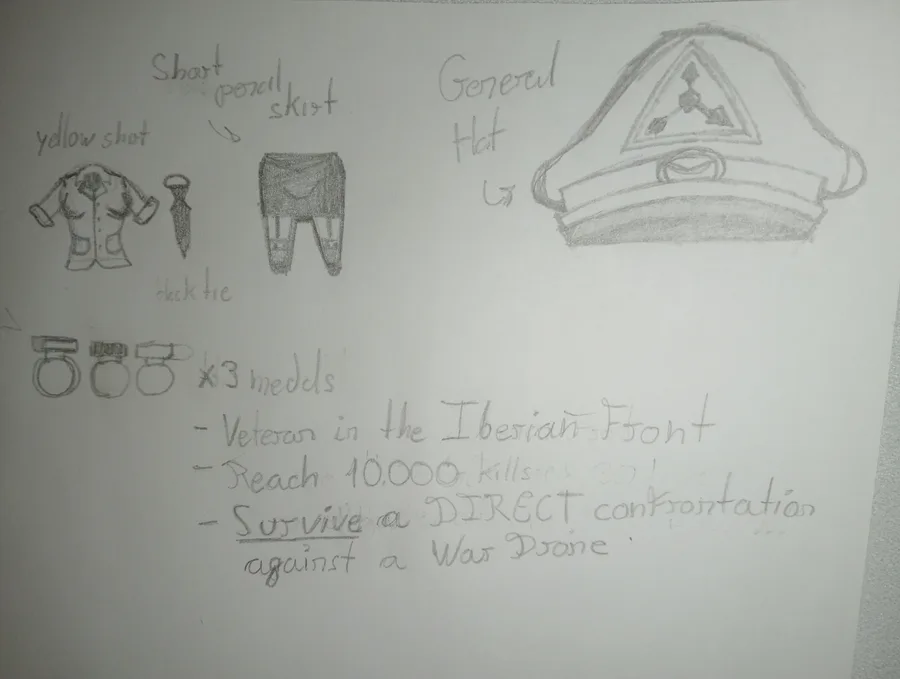 Short
pencil
skirt
General
Hat
yellow shot
black tie
x3 medals
- Veteran in the Iberian Front
- Reach 10.000 kills
- Survive a DIRECT confrontation
against a War Drone.